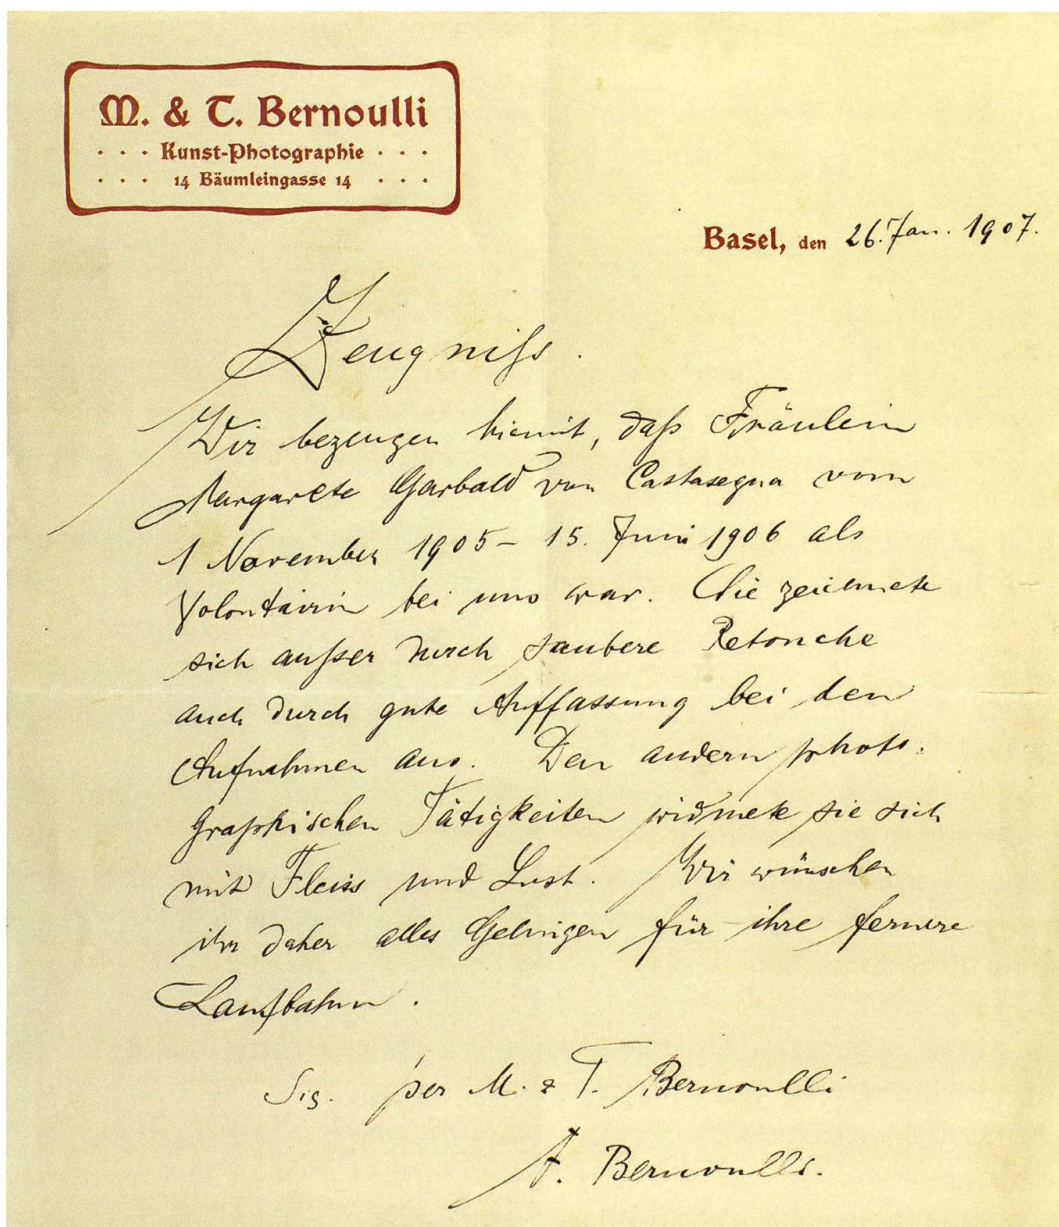 M. & T. Bernoulli
· · · Kunst-Photographie · · ·
· · · 14 Bäumleingasse 14 · · ·
Basel, den 26. Jan. 1907.
Zeugniss.
Wir bezeugen hiemit, dass Fräulein
Margarete Garbald von Castasegna vom
1 November 1905 – 15. Juni 1906 als
Volontärin bei uns war. Sie zeichnete
sich ausser durch saubere Retouche
auch durch gute Auffassung bei den
Aufnahmen aus. Den andern photo-
graphischen Tätigkeiten widmete sie sich
mit Fleiss und Lust. Wir wünschen
ihr daher alles Gelingen für ihre fernere
Laufbahn.
Sig. per M. & T. Bernoulli
A. Bernoulli.